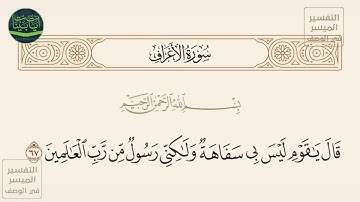 التفسير
الميسر
في الوصف
سُورَةُ الأَعْرَافِ
بِسْمِ اللَّهِ الرَّحْمَٰنِ الرَّحِيمِ
قَالَ يَٰقَوْمِ لَيْسَ بِى سَفَاهَةٌ وَلَٰكِنِّى رَسُولٌ مِّن رَّبِّ الْعَٰلَمِينَ ٦٧
التفسير
الميسر
في الوصف